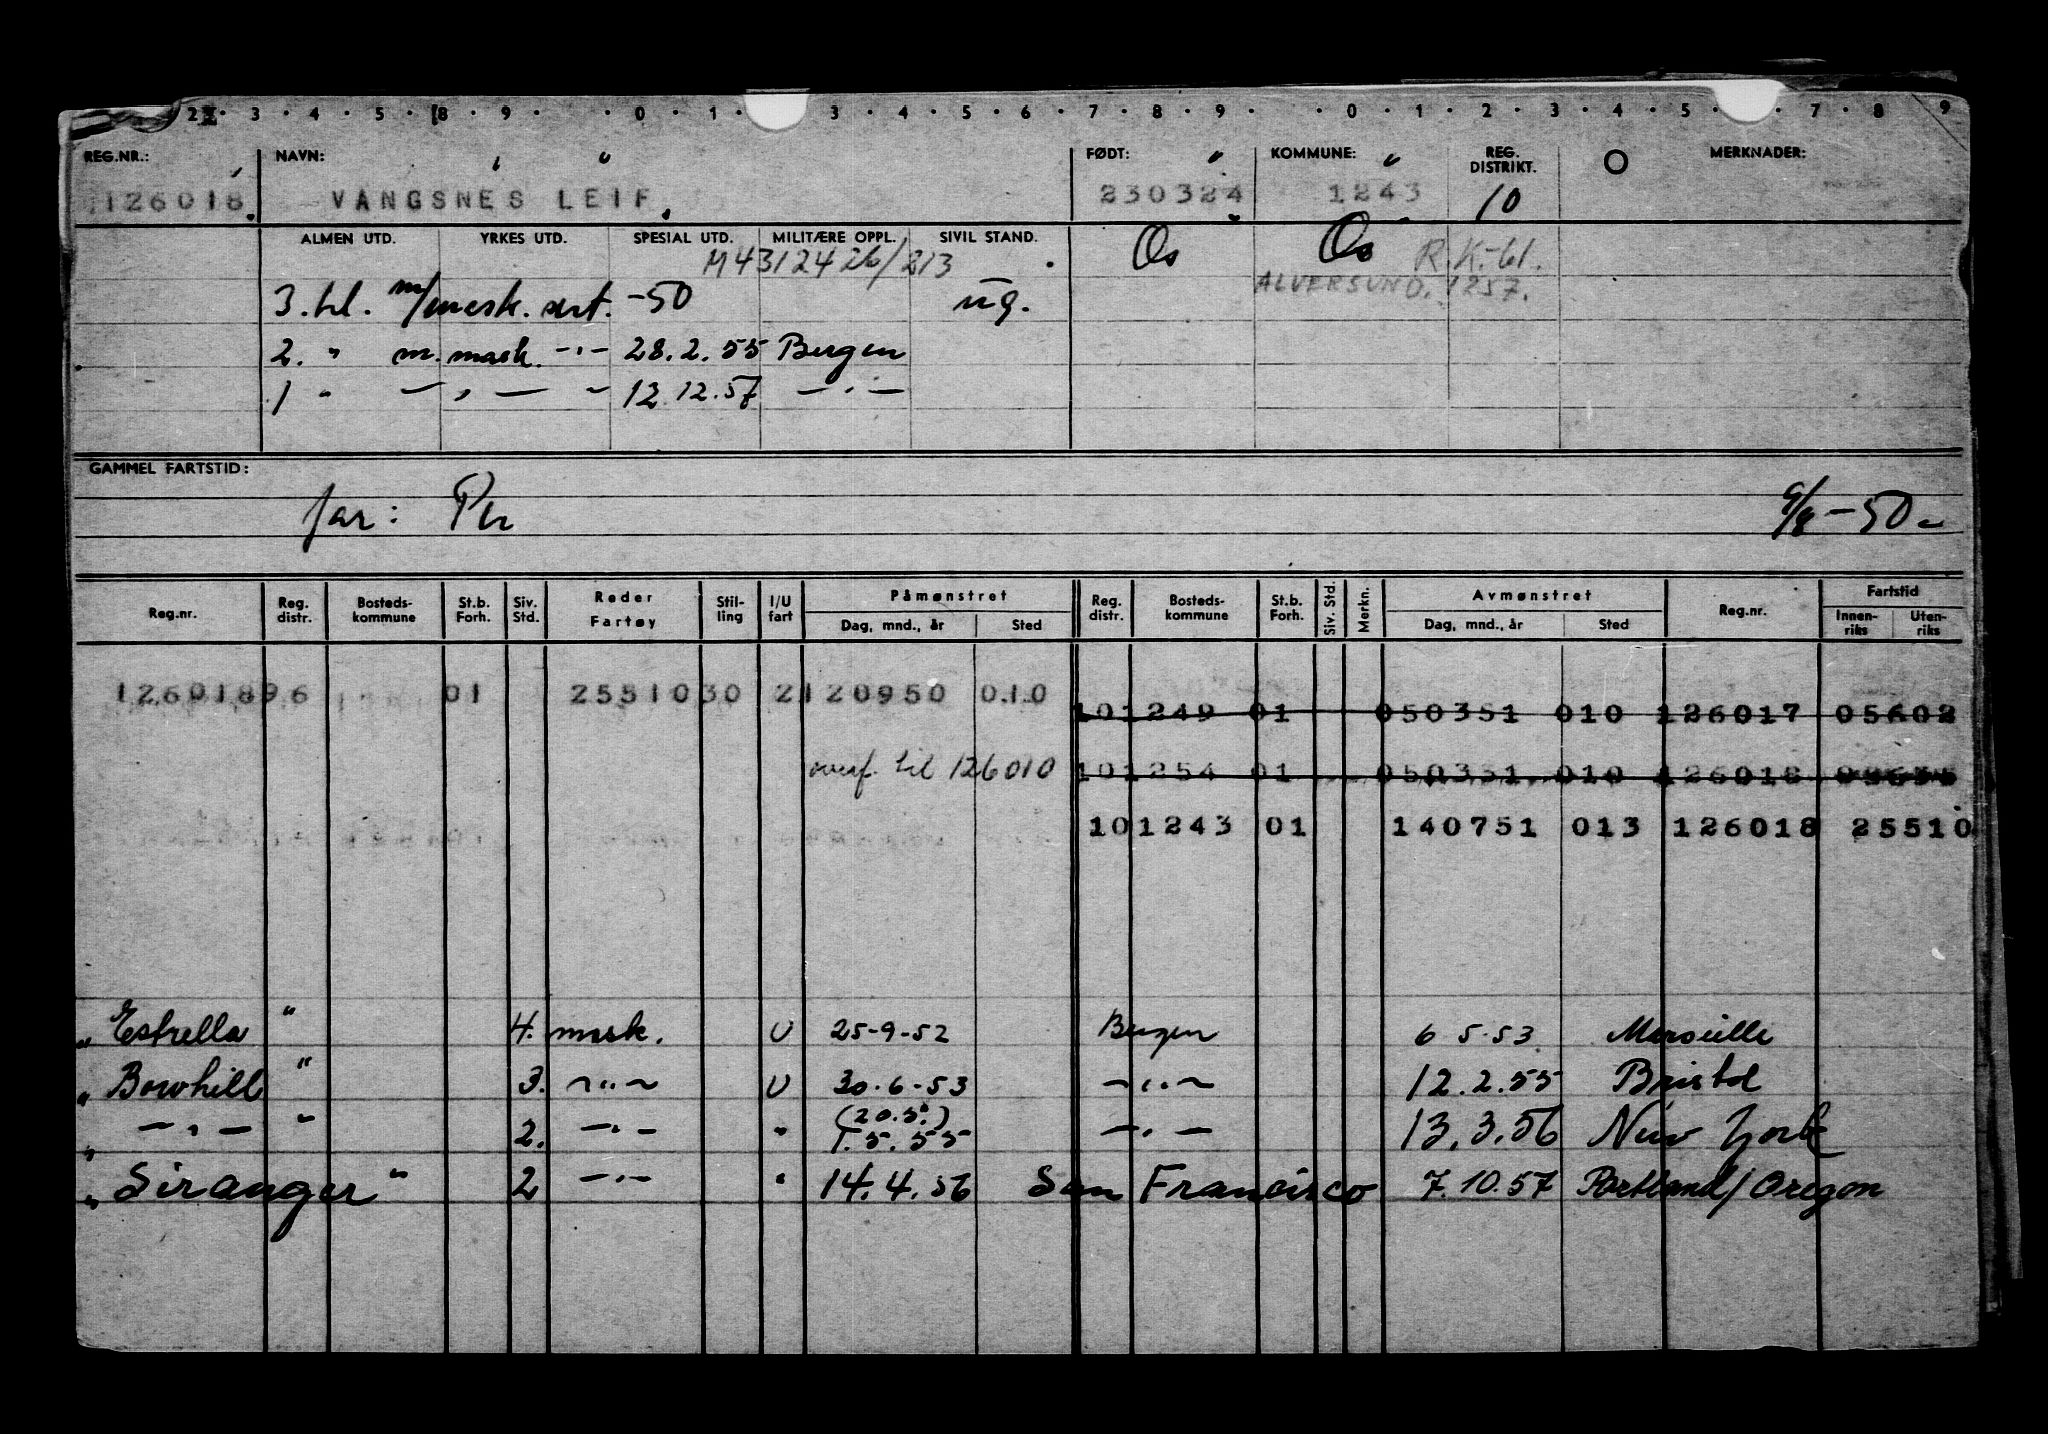 2 · 3 · 4 · 5 · 8 · 9 · 0 · 1 · 3 · 4 · 5 · 6 · 7 · 8 · 9 · 0 · 1 · 2 · 3 · 4 · 5 · 7 · 8 9
REG.NR.: NAVN: FØDT: KOMMUNE: REG. DISTRIKT. MERKNADER:
126018 VANGSNES LEIF. 230324 1243 10
ALMEN UTD. YRKES UTD. SPESIAL UTD. MILITÆRE OPPL. SIVIL STAND. Os Os R.K.-61.
M 43124 26/213 ALVERSUND. 1257.
3. kl. m/mask. sert. -50 ug.
2. " m. mask. -"- 28.2.55 Bergen
1 " - " - " 12.12.57 - " -
GAMMEL FARTSTID:
far: Per 9/8 - 50
Reg.nr. Reg. distr. Bosteds-kommune St.b. Forh. Siv. Std. Reder Fartøy Stil-ling I/U fart Påmønstret Dag, mnd., år Sted Reg. distr. Bosteds-kommune St.b. Forh. Siv. Std. Merkn. Avmønstret Dag, mnd., år Sted Reg.nr. Fartstid Innen-riks Uten-riks
126018 96 01 25510 30 2 120950 010
10 1249 01 050351 010 126017 05602
overf. til 126010 10 1254 01 050351 010 126018
10 1243 01 140751 013 126018 25510
" Estrella " 4. mask. U 25-9-52 Bergen 6 5.53 Marseille
" Bowhill " 3. -"- U 30.6-53 -"- 12.2.55 Bristol
" -"- " 2. -"- " (20.5.) 1.5.55 -"- 13.3.56 New York
" Siranger " 2 -"- " 14.4.56 San Francisco 7.10.57 Portland/Oregon